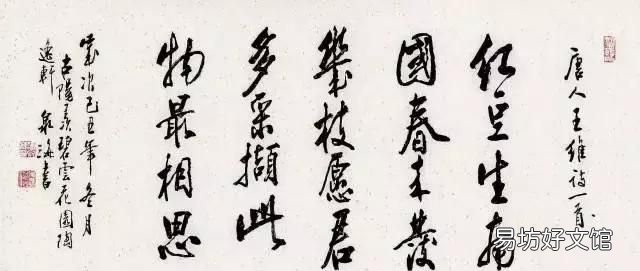 唐人王維詩一首
紅豆生南
國春来發
幾枝愿君
多采擷此
物最相思
歲次己丑年冬月
古陽羨碧雲花園陶
逸軒 泉海書
易坊好文馆